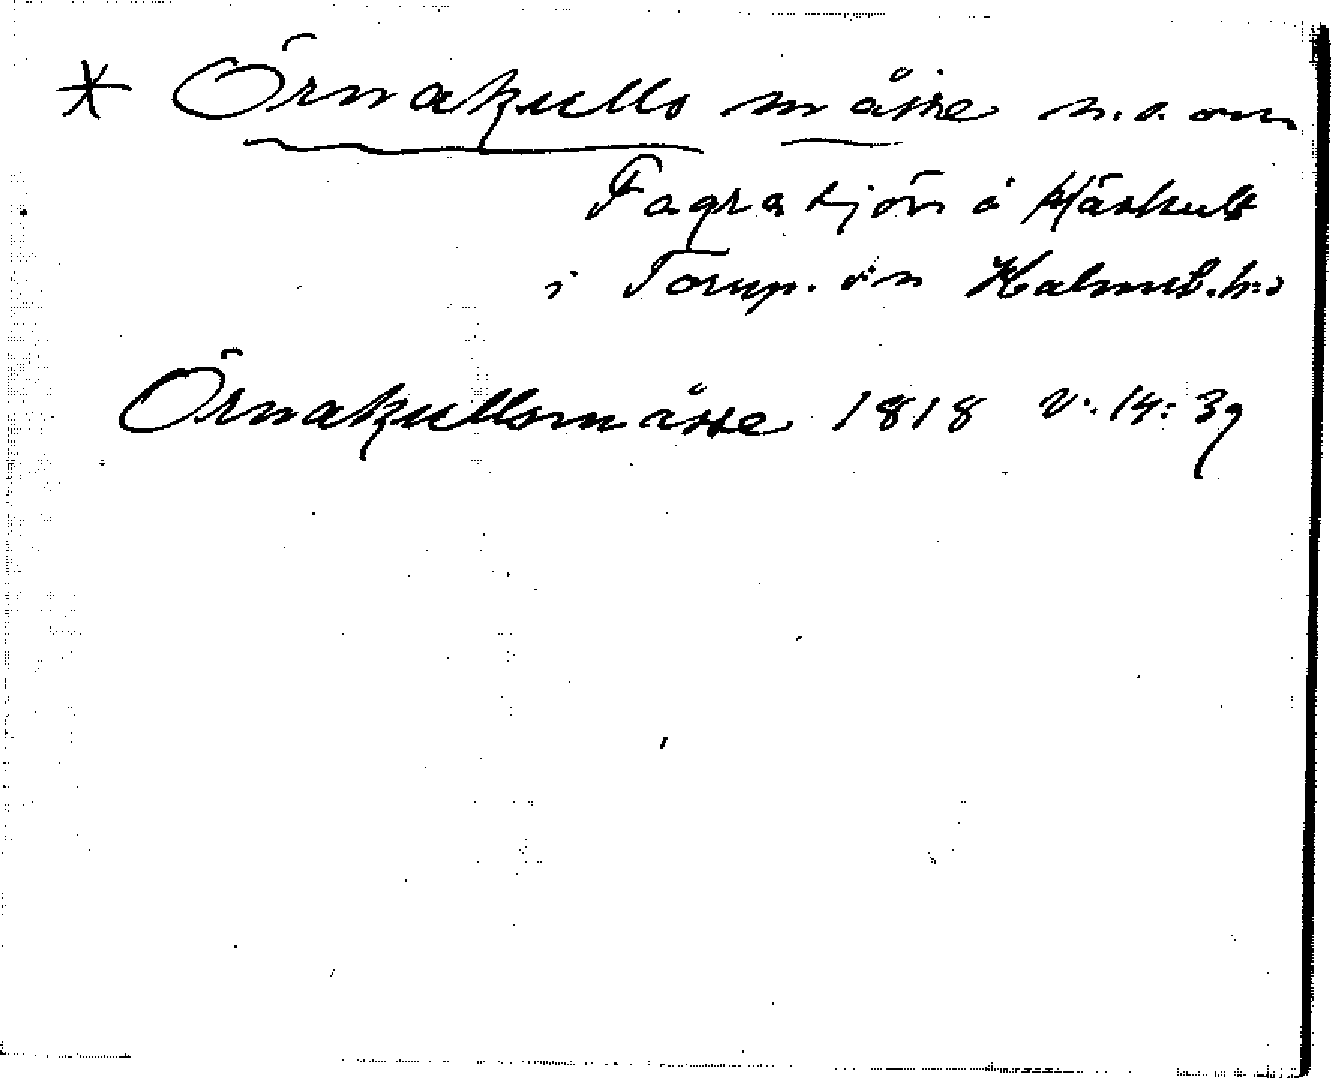 * Örnakulls måsse n.o. om
Fagrasjön å Kläskult
i Torup. sn Halmst. h:d
Örnakullsmåsse 1818 v. 14: 39